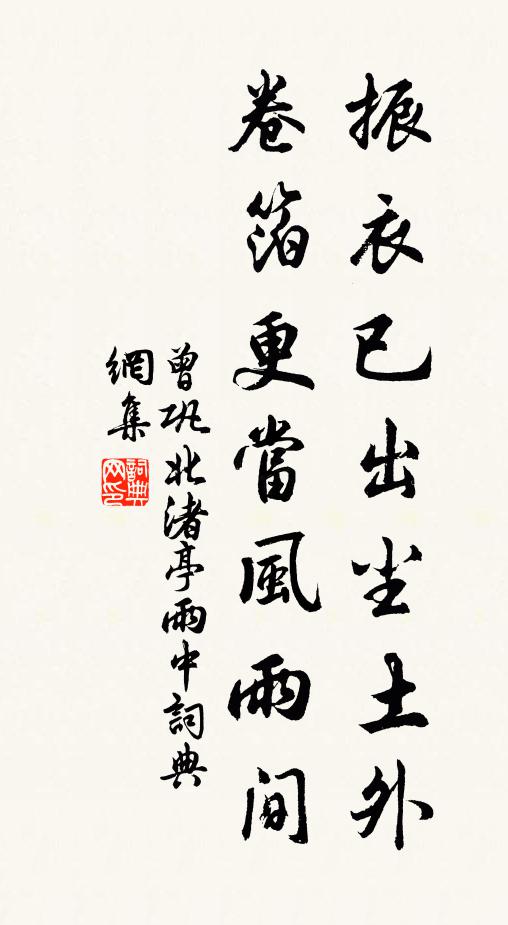 振衣已出尘土外
卷箔更當風雨间
曾巩北渚亭雨中詞典
網集
詞典网印